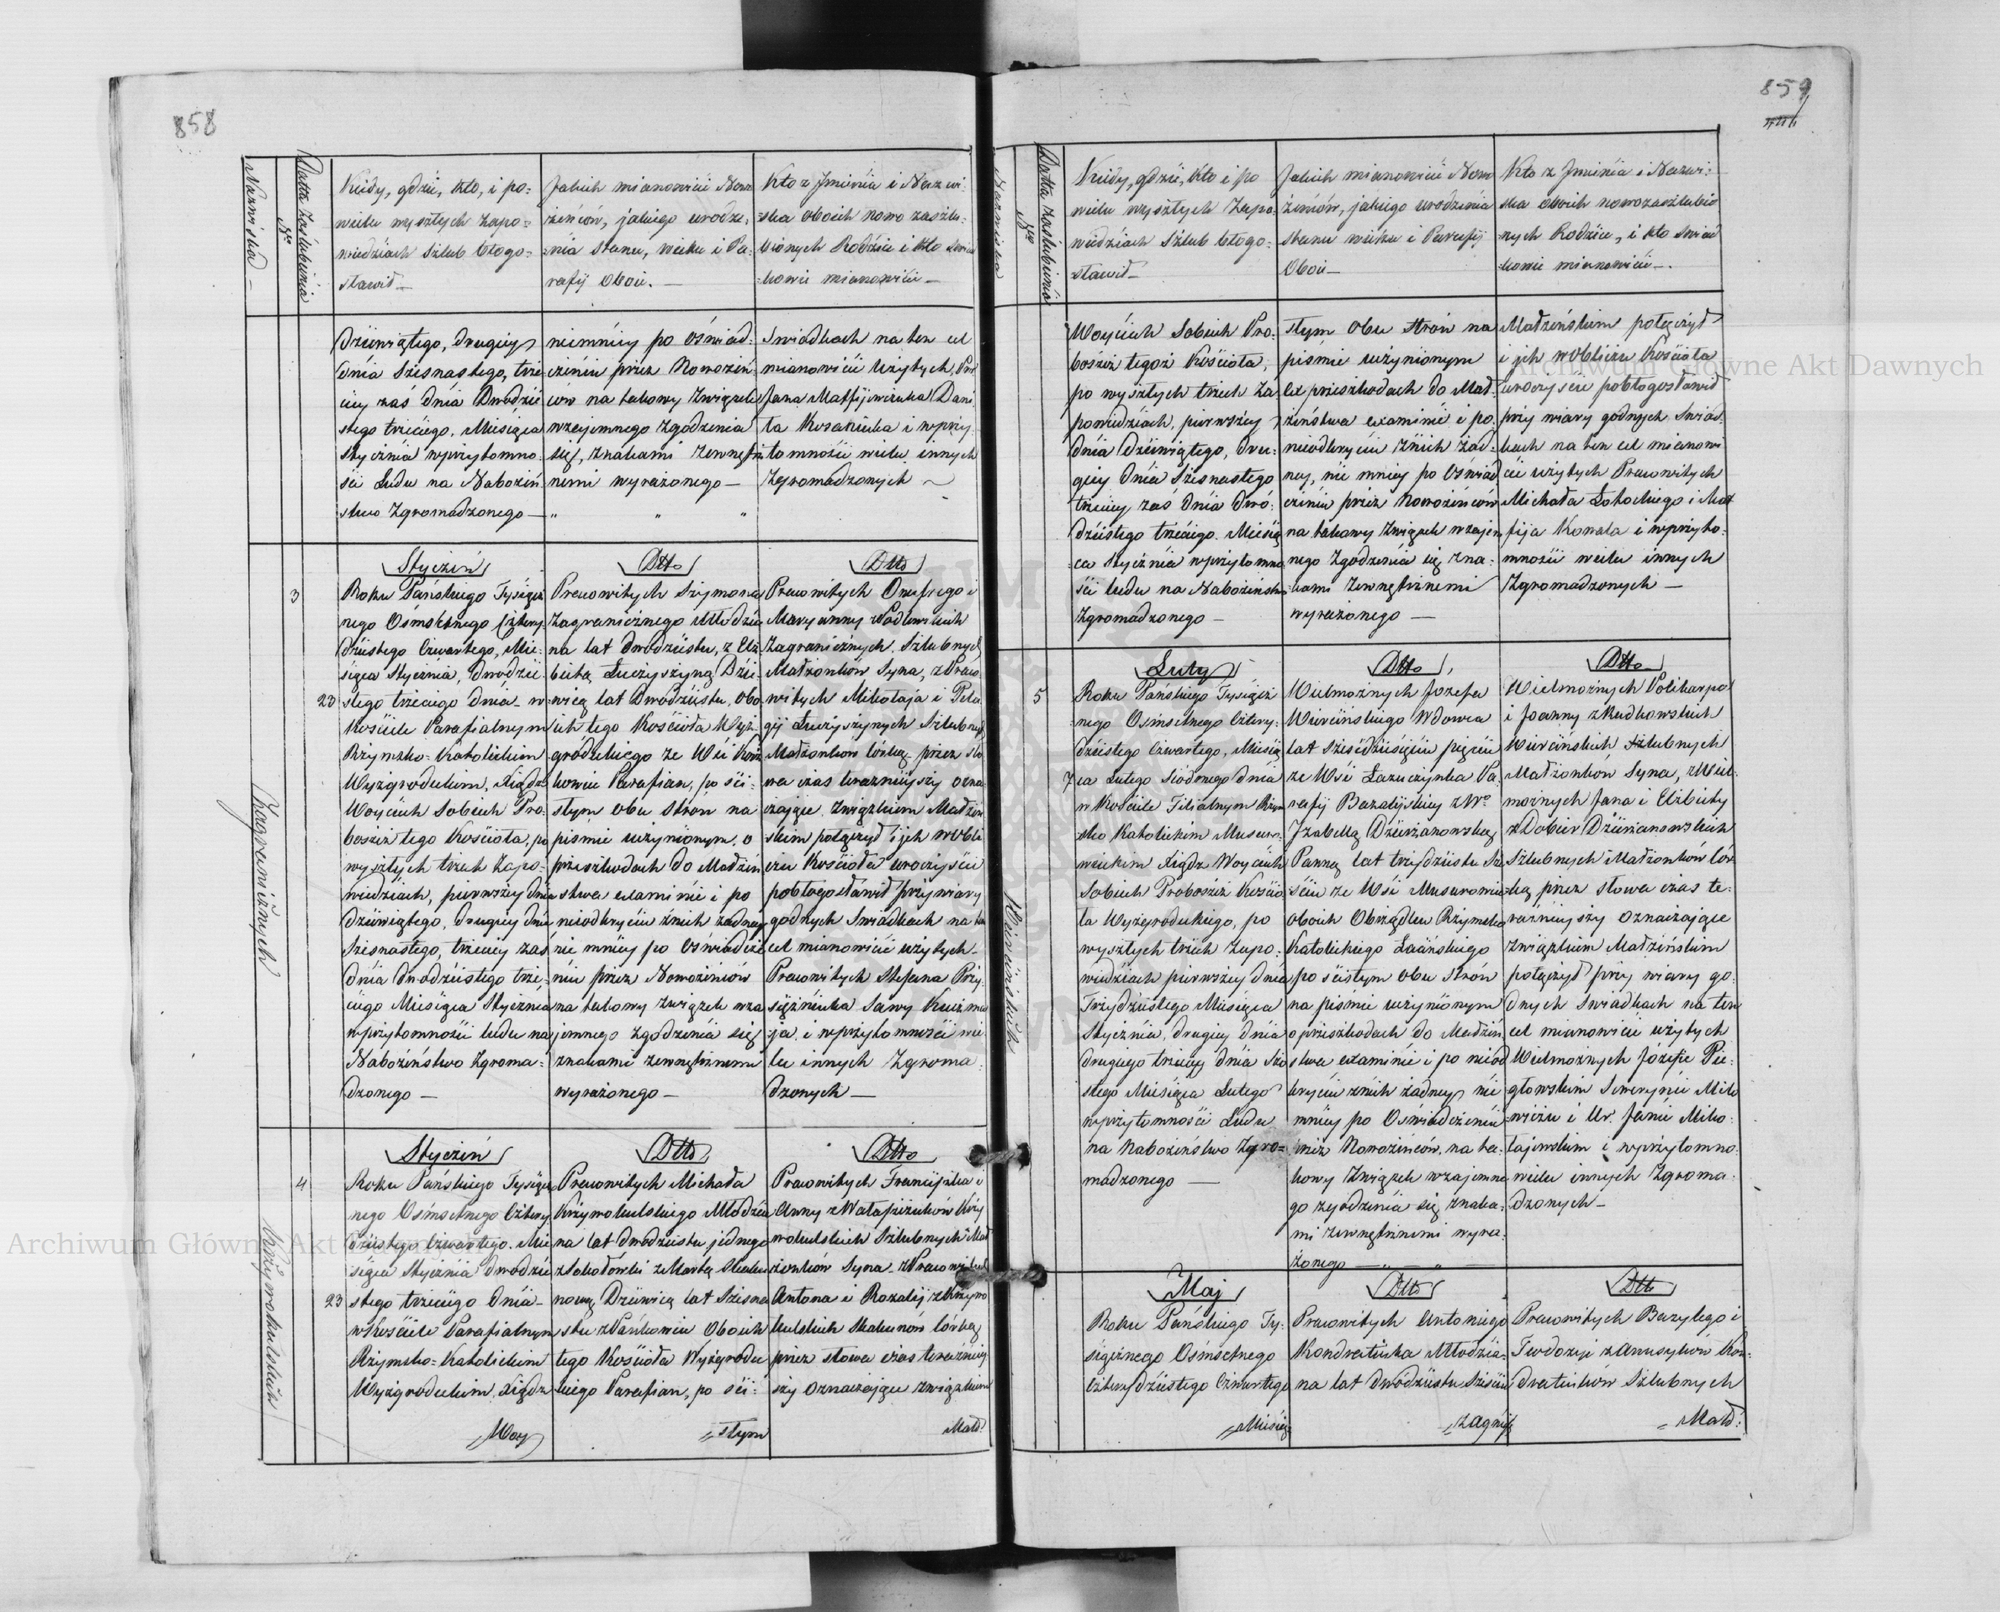 858
Nazwiska
Nro
Datta zaślubienia
Kiedy, gdzie, kto, i po=
wielu wyszłych zapo=
wiedziach szlub błogo=
sławił
Jakich mianowicie Nowo
żeńców, jakiego urodze=
nia stanu, wieku i Pa=
rafij oboie.
Kto z Jmienia i Nazwi=
ska oboich nowo zaszlu=
bionych Rodzice i kto świad
kowie mianowicie
Dziewiątego, drugiey
dnia Szesnastego, trze
ciey zaś dnia Dwudzie
stego trzeciego, Miesiąca
Stycznia wprzytomno
ści Ludu na Nabożeń
stwo Zgromadzonego
niemniey po oświad
czeniu przez Nowożeń
ców na takowy Związek
wzajemnego Zgodzenia
się, znakami zewnętrz
nemi wyrażonego
Swiadkach na ten cel
mianowicie użytych, Pra
Jana Matfijewiczuka Dani
ła Kosaniuka i wprzy
tomności wielu innych
Zgromadzonych
Zagranicznych
3
23
Styczeń
Roku Pańskiego Tysiącz
nego Osmsetnego Cztery
dziestego Czwartego, Mie=
siąca Stycznia, Dwudzie
stego trzeciego dnia w
Kościele Parafialnym
Rzymsko=Katolickim
Wyzgrodeckim, Xiądz
Woyciech Sobiech Pro=
boszcz tego Kościoła, po
wyszłych trzech Zapo=
wiedziach, pierwszey dnia
dziewiątego, drugiey dnia
Szesnastego, trzeciey zaś
dnia dwudziestego trze=
ciego Miesiąca Stycznia
wprzytomności ludu na
Nabożeństwo Zgroma=
dzonego
Dtto
Pracowitych Szymona
Zagranicznego Młodzie
na lat dwudziestu, z Elż
bietą Łuczyszyną Dzie
wicą lat Dwudziestu, obo
ich tego Kościoła Wyż
gródeckiego ze Wsi
kowiec Parafian, po ści=
słym obu stron na
piśmie uczynionym, o
przeszkodach do Małżeń
stwa examinie i po
nieodkryciu znich żadney
nie mniey po Oświadcze
niu przez Nowożeńców
na takowy związek wza
jemnego zgodzenia się
znakami zewnętrznemi
wyrażonego
Dtto
Pracowitych Onufrego i
Maryanny Wodowskich
Zagranicznych, Szlubnych
Małżonków Syna, z Praco
witych Mikołaja i Pela
gij Łuczyszynych Szlubnych
Małżonkow Córką, przez sło
wa czas teraznieyszy ozna
czające związkiem Małżen
skim połączył i jch wobli
czu Kościoła uroczyście
pobłogosławił przy wiary
godnych Swiadkach na ten
cel mianowicie użytych
Pracowitych Stefana Przy
siężniuka Sawy Kuzmu
sja i wprzytomności wie
lu innych Zgroma
dzonych
Krzywokulskich
4
23
Styczeń
Roku Pańskiego Tysiącz
nego Osmsetnego Cztery
dziestego Czwartego Mie
siąca Stycznia Dwudzie
stego trzeciego dnia
wKościele Parafialnym
Rzymsko=Katolickim
Wyzgrodeckim, Xiądz
Woy
Dtto
Pracowitych Michała
Krzywokulskiego Młodzie
na lat dwudziestu jednego
zSokołówki z Martą Skaku
nową Dziewicą lat Szesna
stu zPańkowiec Oboich
tego Kościoła Wyżgrodec
kiego Parafian, po ści=
słym
Dtto
Pracowitych Franciszka i
Anny z Watapiżuków Krzy
wokulskich Szlubnych Mał
żonkow Syna, z Pracowitych
Antona i Rozalij z Krzywo
kulskich Skakunow Córką
przez słowa czas teraźniey
szy oznaczające związkiem
Małż:
859
Nazwiska
Nro
Datta zaślubienia
Kiedy, gdzie, kto i po
wielu wyszłych Zapo
wiedziach szlub błogo=
sławił
Jakich mianowicie Nowo
żeńców, jakiego urodzenia
stanu wieku i Parafij
Oboie
Kto z Jmienia i Nazwi=
ska oboich nowozaszlubio
nych Rodzice, i kto świad
kowie mianowicie
Woyciech Sobiech Pro=
boszcz tegoż Kościoła,
po wyszłych trzech Za=
powiedziach, pierwszey
dnia Dziewiątego, dru=
giey dnia Szesnastego
trzeciey zaś dnia dwó=
dziestego trzeciego, Miesią
ca Stycznia wprzytomno
ści ludu na Nabożeństwo
Zgromadzonego
słym obu strón na
piśmie uczynionym
o przeszkodach do Mał=
żeństwa examinie i po
nieodkryciu znich żad=
ney, nie mniey po oświad
czeniu przez Nowożeńców
na takowy związek wzajem
nego Zgodzenia się zna=
kami zewnętrznemi
wyrażonego
Małżeńskim połączył
i jch wobliczu Kościoła
uroczyście pobłogosławił
przy wiary godnych Swiad
kach na ten cel mianowi
cie użytych Pracowitych
Michała Łotockiego i Mat
fija Kowala i wprzyto=
mności wielu innych
Zgromadzonych
5
7
Luty
Roku Pańskiego Tysiącz
nego Osmsetnego Cztery=
dziestego Czwartego, Miesią
ca Lutego Siódmego dnia
w Kościele Filialnym Rzym
sko Katolickim Musuro=
wieckim Xiądz Woyciech
Sobiech Proboszcz Kościo
ła Wyżgrodeckiego, po
wyszłych trzech Zapo=
wiedziach pierwszey dnia
Trzydziestego Miesiąca
Stycznia, drugiey dnia
drugiego trzeciey dnia Szó
stego Miesiąca Lutego
wprzytomności Ludu
na Nabożeństwo Zgro=
madzonego
Dtto
Wielmożnych Jozefa
Wiercińskiego Wdowca
lat Sześcdziesięciu pięciu
ze Wsi Łazuczynka Pa
rafij Bazalijskiey z Wo
Jzabellą Dzierżanowską
Panną lat trzydziestu Sze
ściu ze Wsi Musurowiec
oboich Obrządku Rzymsko
Katolickiego Łacińskiego
po ścisłym obu strón
na piśmie uczynionym
o przeszkodach do Małżeń
stwa examinie i po nieod
kryciu znich żadney nie
mniey po Oświadczeniu
przez Nowożeńców, na ta=
kowy Związek wzajemne
go zgodzenia się znaka=
mi zewnętrznemi wyra=
żonego
Dtto
Wielmożnych Polikarpa
i Joanny z Rudkowskich
Wiercińskich Szlubnych
Małżonków Syna, z Wiel=
możnych Jana i Elżbiety
z Dobier Dzierżanowskich
Szlubnych Małżonków Cór
ką przez słowa czas te=
raźnieyszy oznaczające
związkiem Małżeńskim
połączył przy wiary go=
dnych Swiadkach na ten
cel mianowicie użytych
Wielmożnych Józefie Pie=
głowskim Sewerynie Milo
wiczu i Ur. Janie Miko=
łajewskim i wprzytomno
wielu innych Zgroma=
dzonych
Maj
Roku Pańskiego Ty=
siącznego Osmsetnego
Czterydziestego Czwartego
Miesią
Dtto
Pracowitych Antoniego
Kondratiuka Młodzia=
na lat dwódziestu Sześciu
zagnij
Dtto
Pracowitych Bazylego i
Teodozyi z Anusyków Kon=
dratiuków Szlubnych
Małż:
Archiwum Główne Akt Dawnych
Archiwum Główne Akt Dawnych